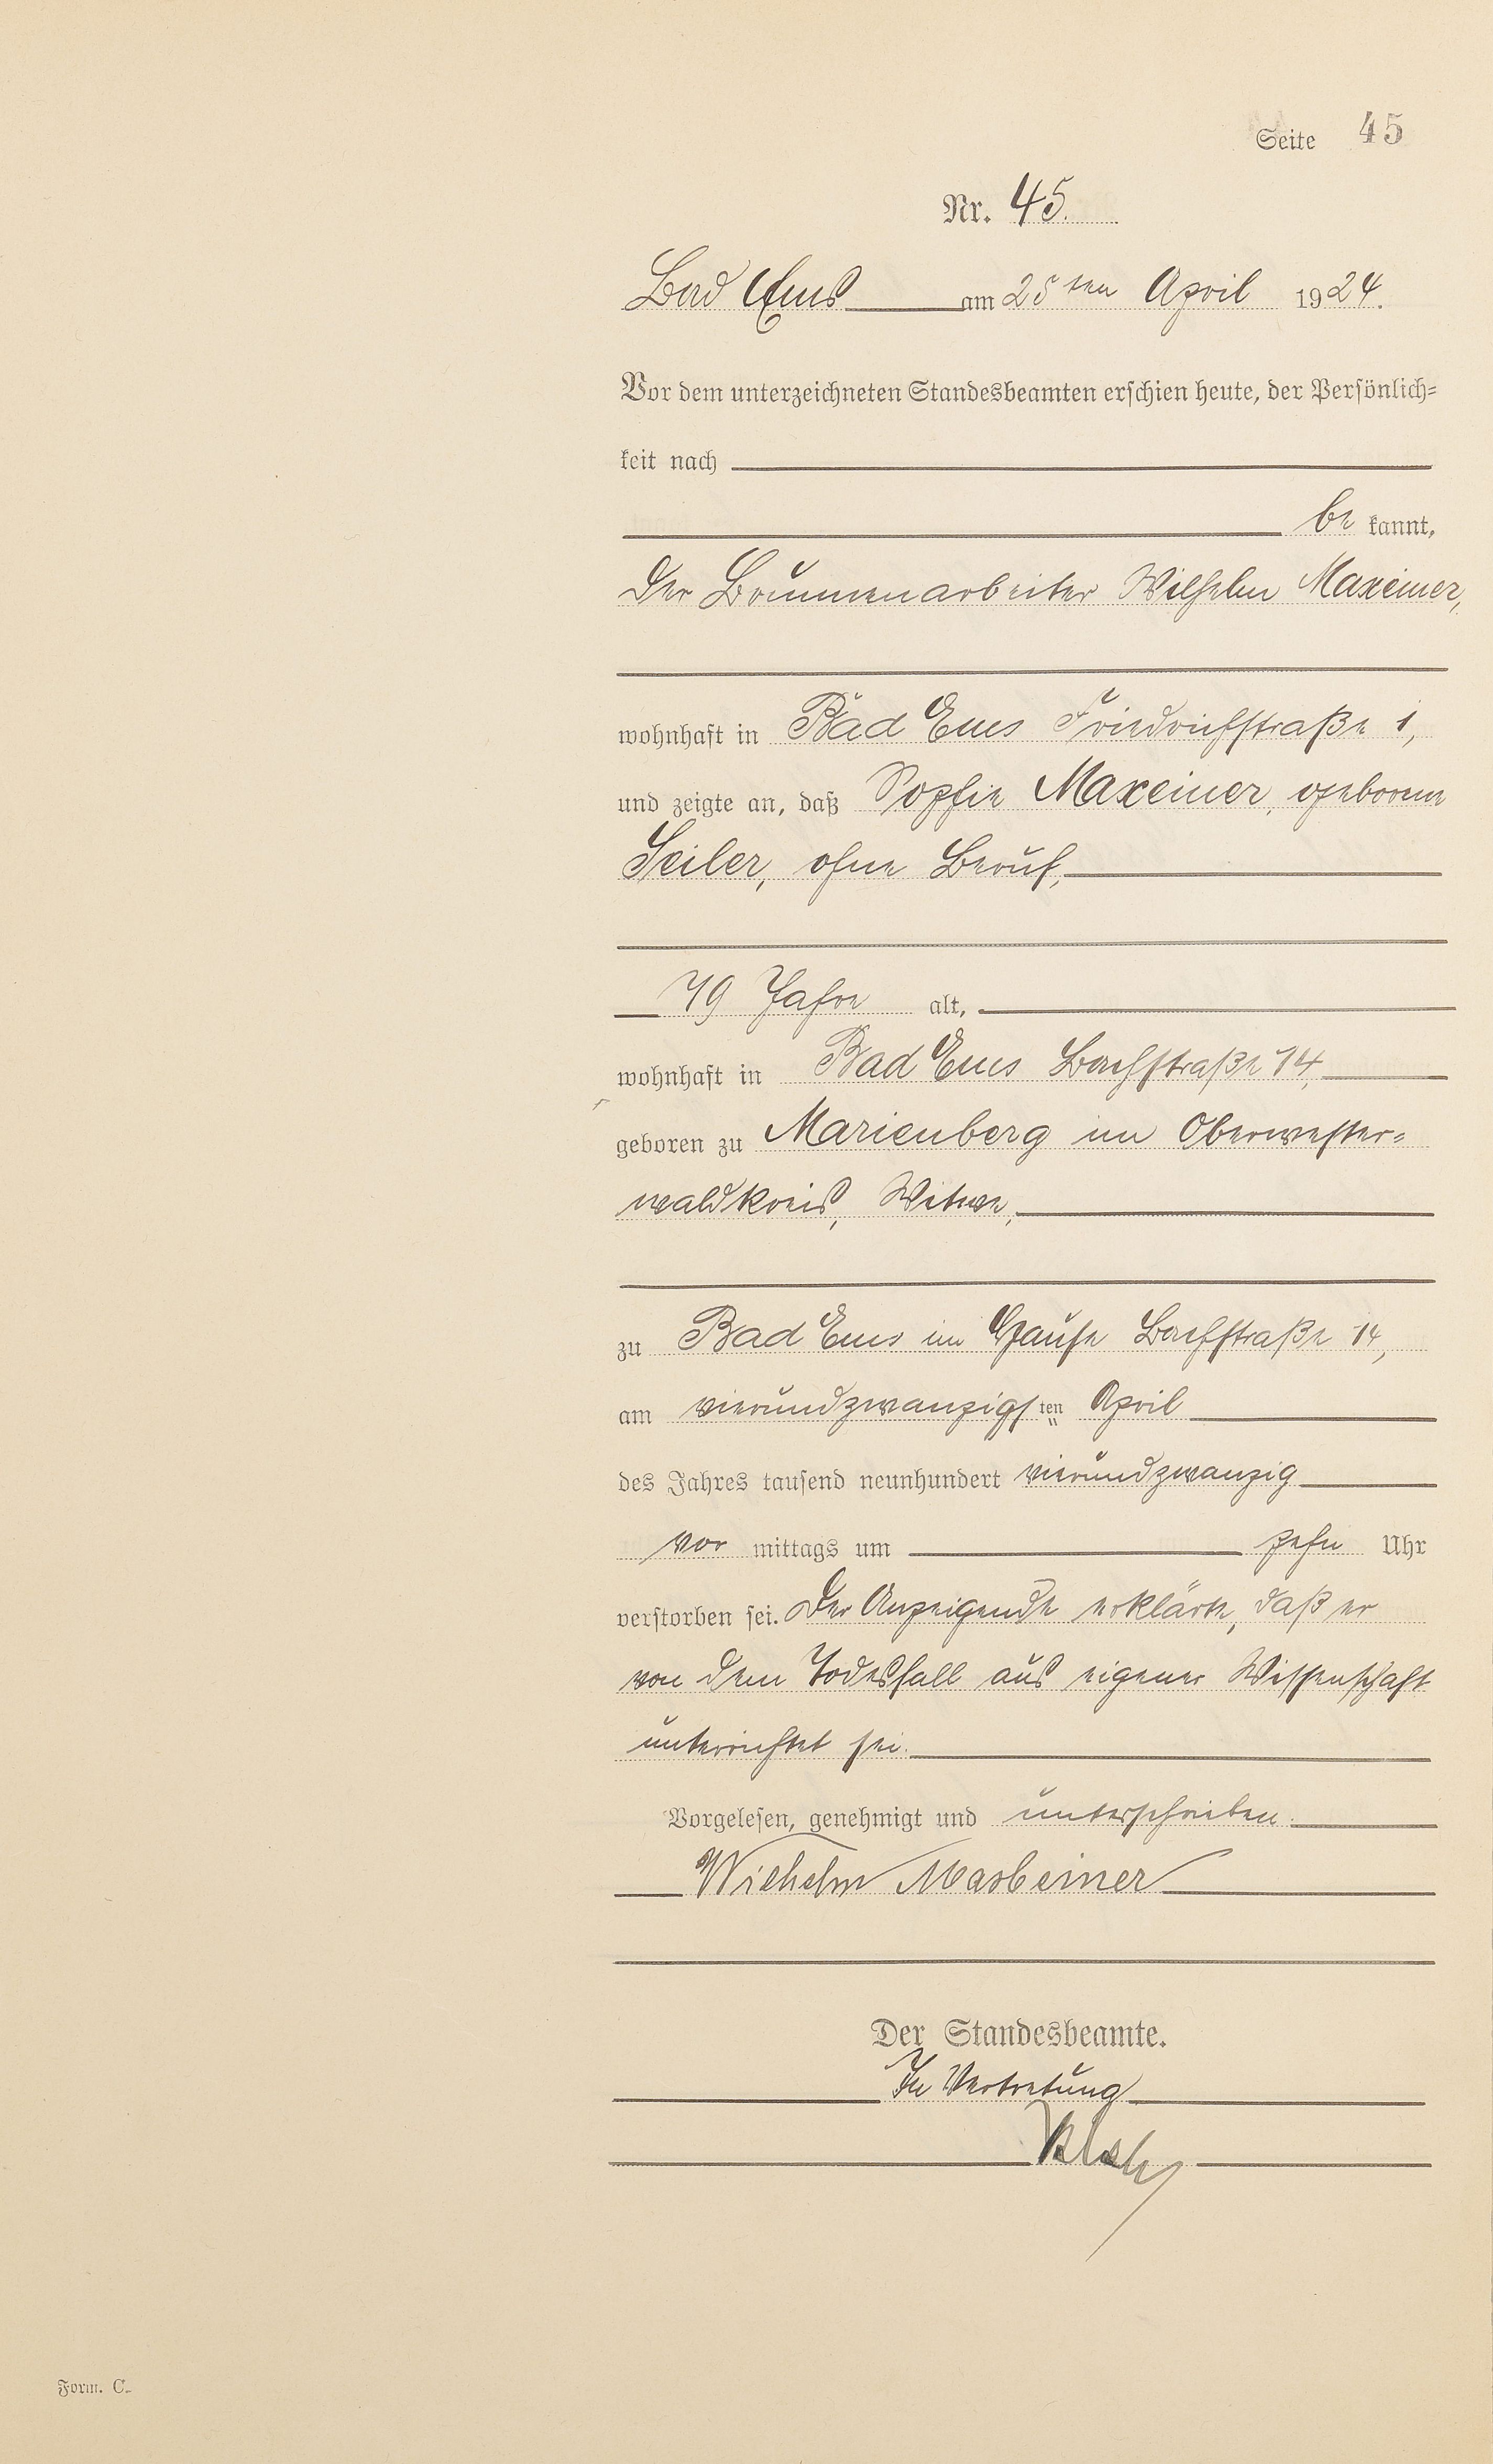 Seite 45
Nr. 45.
Bad Ems am 25ten April 1924.
Vor dem unterzeichneten Standesbeamten erschien heute, der Persönlich-
keit nach
be kannt,
der Brunnenarbeiter Wilhelm Maxeiner,
wohnhaft in Bad Ems Friedrichstraße 1,
und zeigte an, daß Sophie Maxeiner, geborene
Seiler, ohne Beruf,
79 Jahre alt,
wohnhaft in Bad Ems Bachstraße 14,
geboren zu Marienberg im Oberwester-
waldkreis, Witwe,
zu Bad Ems im Hause Bachstraße 14,
am vierundzwanzigsten April
des Jahres tausend neunhundert vierundzwanzig
vor mittags um zehn Uhr
verstorben sei. Der Anzeigende erklärte, daß er
von dem Todesfall aus eigener Wissenschaft
unterrichtet sei.
Vorgelesen, genehmigt und unterschrieben.
Wilhelm Maxeiner
Der Standesbeamte.
In Vertretung
Form. C.